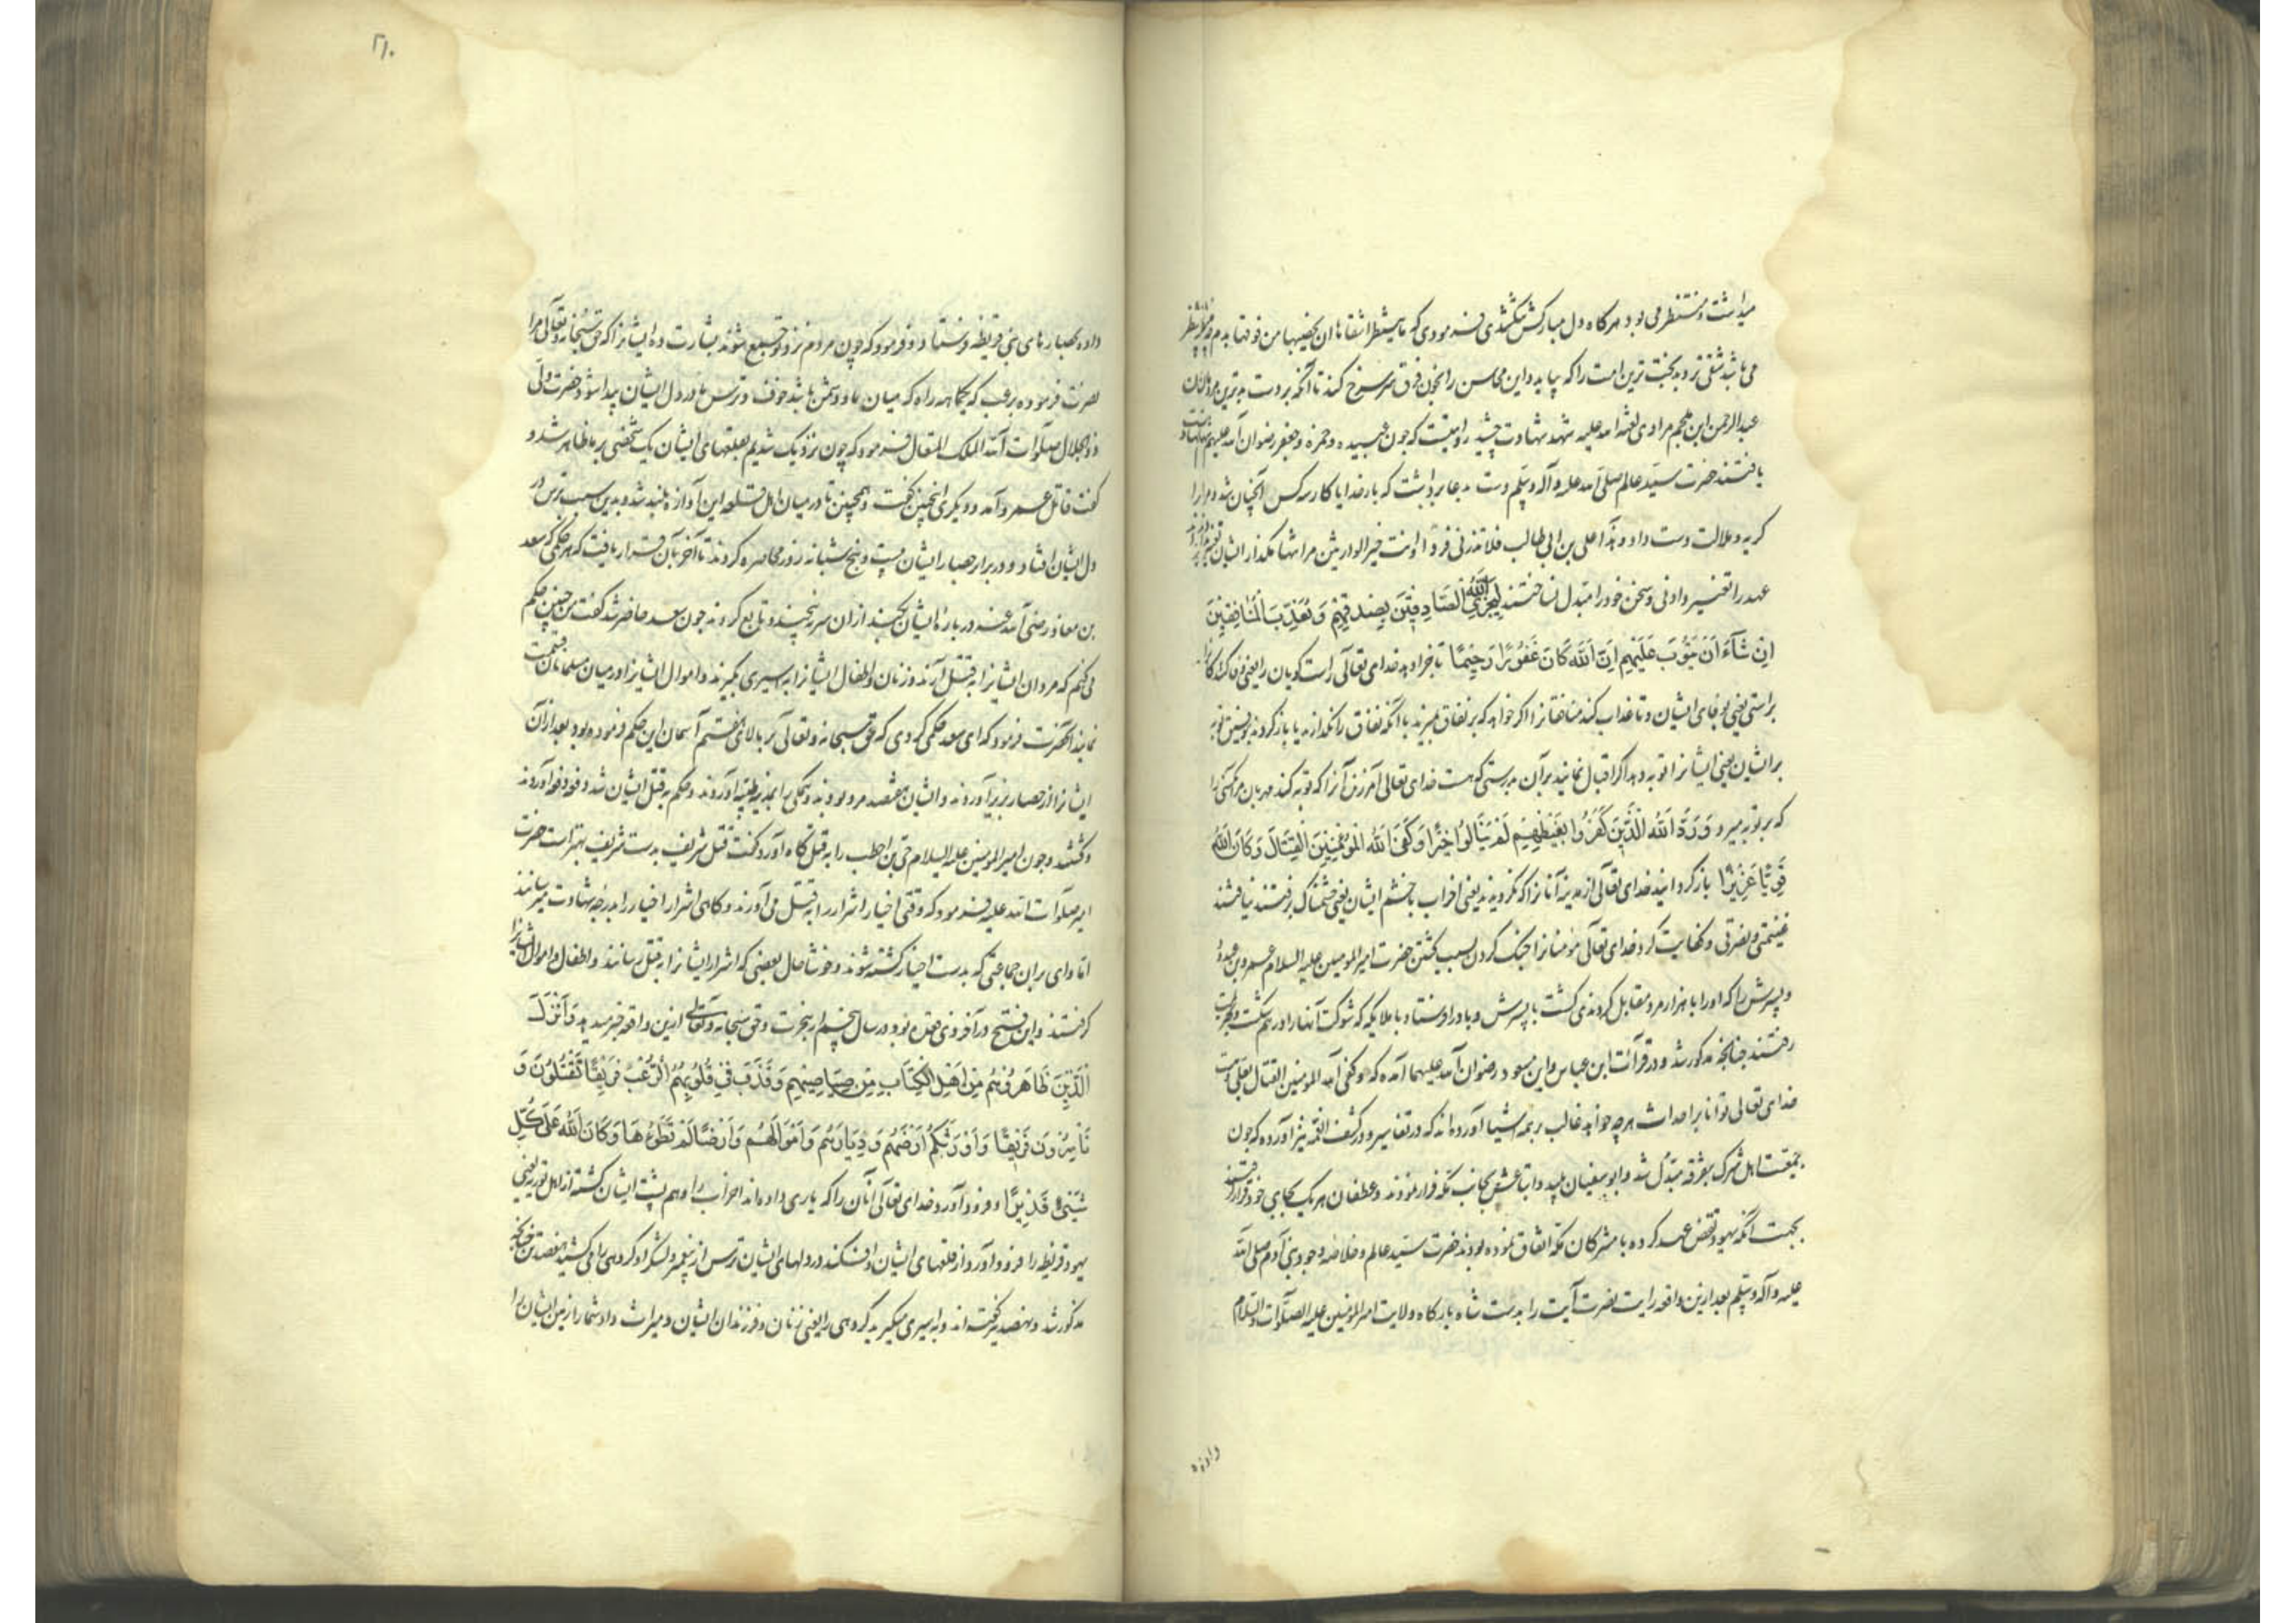 میداشت و منتظر می بود و هرکاه دل مبارکش تنکشدی فرمودی که ما ینتظر اشقاها ان یخضبها من فوقها بدم
می باشد شقی ترو بدبخت ترین امت را که بیاید و این محاسن را بخون فرق سر سرخ کند تا آنکه بر دست بدترین مردمان
عبد الرحمن ابن ملجم مرادی لعنة الله علیه شهد شهادت چشید روایتست که چون عبیده و حمزه و جعفر رضوان الله علیهم شهادت
یافتند حضرت سید عالم صلی الله علیه و آله وسلم دست به دعا برداشت که بار خدایا کار سه کس آنچنان شد و مرا از
کریه و ملالت دست داد و هذا علی بن ابی طالب فلا تذرنی فردا و انت خیر الوارثین مرا تنها مکذار ایشان
عهد را تغییر دادنی و سخن خود را مبدل نساختند لِیَجْزِیَ اللهُ الصَّادِقِینَ بِصِدْقِهِمْ وَیُعَذِّبَ الْمُنَافِقِینَ
اِنْ شَآءَ اَوْ یَتُوبَ عَلَیْهِمْ اِنَّ اللهَ کَانَ غَفُورًا رَحِیمًا تا جزا دهد خدای تعالی راست کویان را یعنی
براستی یعنی بوفای ایشان و تا عذاب کند منافقانرا اکر خواهد که بر نفاق میرند یا آنکه نفاق را بکذارند یا باز کردد
بر ایشان یعنی ایشانرا توبه دهد اکر اقبال نمایند بر آن بدرستی که هست خدای تعالی آمرزنده آنرا که توبه کند مهربان مر آنکسی را
که بر توبه میرد وَرَدَّ اللهُ الَّذِینَ کَفَرُوا بِغَیْظِهِمْ لَمْ یَنَالُوا خَیْرًا وَکَفَی اللهُ الْمُؤْمِنِینَ الْقِتَالَ وَکَانَ اللهُ
قَوِیًّا عَزِیزًا باز کردانید خدای تعالی از مدینه آنانرا که نکرویدند یعنی احزاب با خشم ایشان یعنی خشمناک برفتند نیافتند
غنیمتی و نصرتی و کفایت کرد خدای تعالی مؤمنانرا جنک کردن بسبب کشتن حضرت امیر المومنین علیه السلام عمرو بن عبدود
و پسرش را که او را با هزار مرد مقابل کردندی کشت با پسرش و باد را فرستاد با ملایکه که شوکت آنها را در هم شکست
رفتند چنانچه مذکور شد و در قرآئت ابن عباس و ابن مسعود رضوان الله علیهما آمده که و کفی الله المومنین القتال بعلی و هست
خدای تعالی توانا بر احداث هر چه خواهد غالب بر همه اشیا آورده اند که در تفاسیر و در کشف الغمه نیز آورده که چون
جمعیت اهل شرک بتفرقه مبدل شد و ابو سفیان پلید و اتباعش بجانب مکه فرار نمودند و غطفان هر یک بجای خود قرار کرفتند
بجهت آنکه یهود نقض عهد کرده با مشرکان مکه اتفاق نموده بودند حضرت سید عالم و خلاصه وجود بنی آدم صلی الله
علیه و آله وسلم بعد ازین واقعه رایت نصرت آیت را بدست شاه بارکاه ولایت امیر المومنین علیه الصلوات والسلام
داده
۲۱۰
داده بحصارهای بنی قریظه فرستاد و فرمود که چون مردم نزد تو جمع شوند بشارت ده ایشانرا که حق سبحانه و تعالی مرا
نصرت فرموده برعب که یکماهه راه که میان ما و دشمن باشد خوف و ترس ما در دل ایشان پیدا شود حضرت ولی
ذو الجلال صلوات الله الملک المتعال فرمود که چون نزدیک شدیم بقلعهای ایشان یک شخصی بر ما ظاهر شد و
کفت قاتل عمرو آمد و دیکری اینچنین کفت و همچنین تا در میان اهل قلعه این آوازه بلند شد و بدین سبب ترس در
دل ایشان افتاد و در برابر حصار ایشان بیست و پنج شبانه روز محاصره کردند تا آخر بآن قرار یافت که هر حکمی که سعد
بن معاذ رضی الله عنه در باره ایشان بکند از ان سر نپیچند و تابع کردند چون سعد حاضر شد کفت من چنین حکم
می کنم که مردان ایشانرا به قتل آرند و زنان و اطفال ایشانرا به اسیری بکیرند و اموال ایشانرا در میان مسلمانان قسمت
نمایند آنحضرت فرمود که ای سعد حکمی کردی که حق سبحانه و تعالی بر بالای هفتم آسمان این حکم فرموده بود بعد از آن
ایشانرا از حصار بزیر آوردند و ایشان هفتصد مرد بودند و همکی را بمدینه طیبه آوردند و حکم به قتل ایشان شد و فوج فوج آوردند
و کشتند و چون امیر المومنین علیه السلام حی بن اخطب را به قتل کاه آورد کفت قتل شریف بدست شریف بهتر است حضرت
امیر صلوات الله علیه فرمود که وقتی اخیار اشرار را به قتل می آورند و کاهی اشرار اخیار را بدرجه شهادت میرسانند
اما وای بر ان جماعتی که بدست اخیار کشته شوند و خوشا حال بعضی که اشرار ایشانرا به قتل رسانند و اطفال و اموال ایشانرا
کرفتند و این فتح در آخر ذی قعده بود در سال پنجم از هجرت و حق سبحانه و تعالی ازین واقعه خبر میدهد وَاَنْزَلَ
الَّذِینَ ظَاهَرُوهُمْ مِنْ اَهْلِ الْکِتَابِ مِنْ صَیَاصِیهِمْ وَقَذَفَ فِی قُلُوبِهِمُ الرُّعْبَ فَرِیقًا تَقْتُلُونَ وَ
تَأْسِرُونَ فَرِیقًا وَاَوْرَثَکُمْ اَرْضَهُمْ وَدِیَارَهُمْ وَاَمْوَالَهُمْ وَاَرْضًا لَمْ تَطَؤُهَا وَکَانَ اللهُ عَلَی کُلِّ
شَیْءٍ قَدِیرًا و فرود آورد خدای تعالی آنان را که یاری داده اند احزاب را و هم پشت ایشان کشته از اهل توریة یعنی
یهود قریظه را فرود آورد از قلعهای ایشان و افکند در دلهای ایشان ترس از پیغمبر و لشکر او کروهی را می کشید هفصد تن چنانچه
مذکور شد و نهصد نیز کفته اند و به اسیری میکیرید کروهی را یعنی زنان و فرزندان ایشان و میراث داد شما را زمین ایشان را